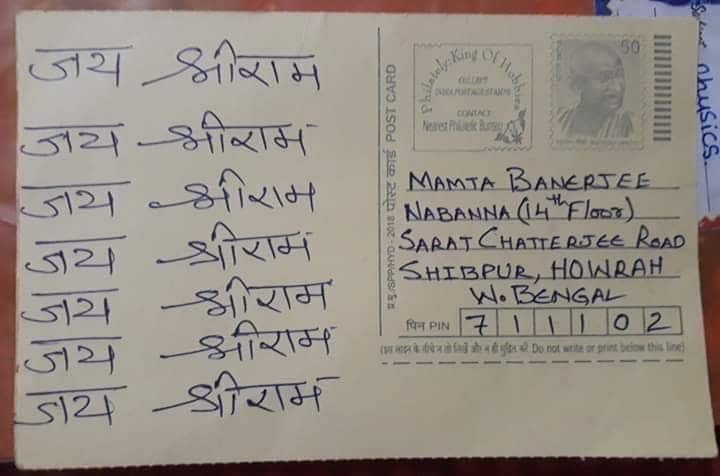 जय श्रीराम
जय श्रीराम
जय श्रीराम
जय श्रीराम
जय श्रीराम
जय श्रीराम
जय श्रीराम
Philately: King Of Hobbies
COLLECT
INDIA POSTAGE STAMPS
CONTACT
Nearest Philatelic Bureau
50
2018 पोस्ट कार्ड POST CARD
MAMTA BANERJEE
NABANNA (14th Floor)
SARAT CHATTERJEE ROAD
SHIBPUR, HOWRAH
W. BENGAL
पिन PIN 711102
(इस लाइन के नीचे न तो लिखें और न ही मुद्रित करें Do not write or print below this line)
physics.